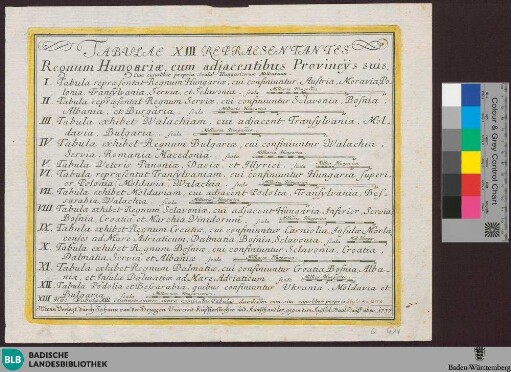 TABULAE XIII REPRAESENTANTES
Regnum Hungariæ, cum adjacentibus Provincÿs suis,
I Tabula repræsentat Regnum Hungariæ, cui confiniuntur Austria, Moravia, Po-
lonia, Transylvania, Servia, et Sclavonia, scala Milliaria Hungarica
II Tabula repræsentat Regnum Serviæ, cui confiniuntur Sclavonia, Bosnia
Albania, et Burgaria. scala Milliaria Hungarica
III Tabula exhibet Walachiam, cui adjacent Transylvania, Mol-
davia, Bulgaria scala Milliaria Hungarica
IV Tabula exhibet Regnum Bulgariæ, cui confiniuntur Walachia
Servia, Romania Macedonia scala Milliaria Hungarica
V Tabula Veteris Pannoniæ, Daciæ, et Illyrici scala
VI Tabula repræsentat Transylvaniam, cui confiniuntur Hungaria superi-
or, Polonia, Moldavia, Walachia scala Milliaria Hungarica
VII Tabula exhibet Moldaviam, cui adjacent Podolia, Transylvania, Bes-
sarabia, Walachia scala Milliaria Hungarica
VIII Tabula exhibet Regnum Sclavoniæ, cui adjacent Hungaria Inferior Servia
Bosnia, Croatia et Marchia Vinidorum scala Milliaria Hungarica
IX Tabula exhibet Regnum Croatiæ, cui confiniuntur Carniolia, Insulæ Morla-
censes ad Mare Adriaticum, Dalmatia Bosnia, Sclavonia scala
X Tabula exhibet Regnum Bosniæ cui confiniuntur Sclavonia, Croatia
Dalmatia, Servia et Albania scala Milliaria Hungarica
XI Tabula exhibet Regnum Dalmatiæ, cui confiniuntur Croatia, Bosnia, Alba-
nia, et Insulæ Dalmatiæ ad Mare Adriaticum scala Milliaria Hungarica
XII Tabula Podolia et Bessarabia, quibus confiniuntur Ukrania, Moldavia et
Bulgaria scala Milliaria Hungarica
XIII
Colour & Grey Control Chart
BLB BADISCHE
LANDESBIBLIOTHEK
Baden-Württemberg